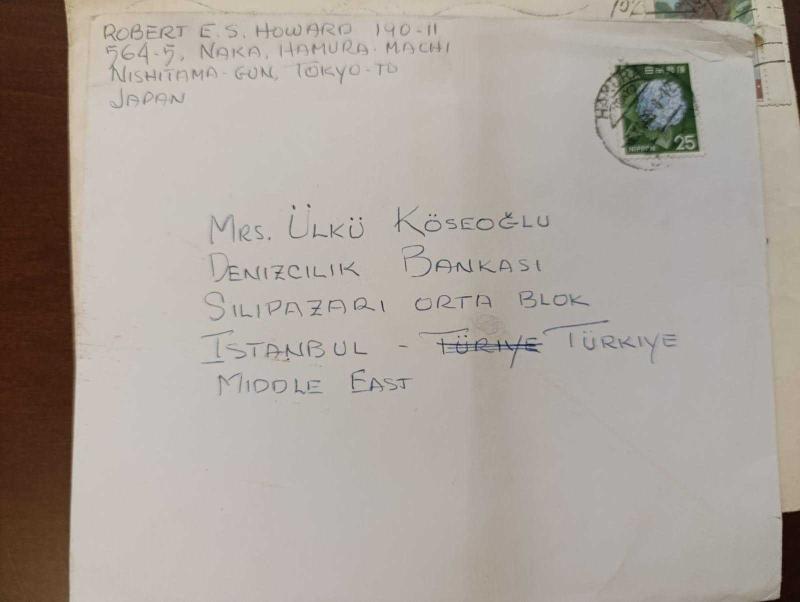 ROBERT E.S. HOWARD 190-11
564-5, NAKA, HAMURA-MACHI
NISHITAMA-GUN, TOKYO-TO
JAPAN
日本郵便
NIPPON 25
MRS. ÜLKÜ KÖSEOĞLU
DENIZCILIK BANKASI
SILIPAZARI ORTA BLOK
ISTANBUL - TÜRIYE TÜRKIYE
MIDDLE EAST